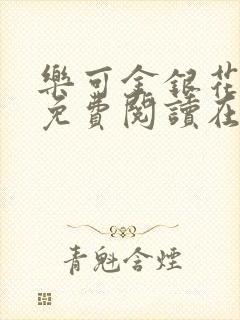 樂可金銀花
免費閱讀在
青魁含煙